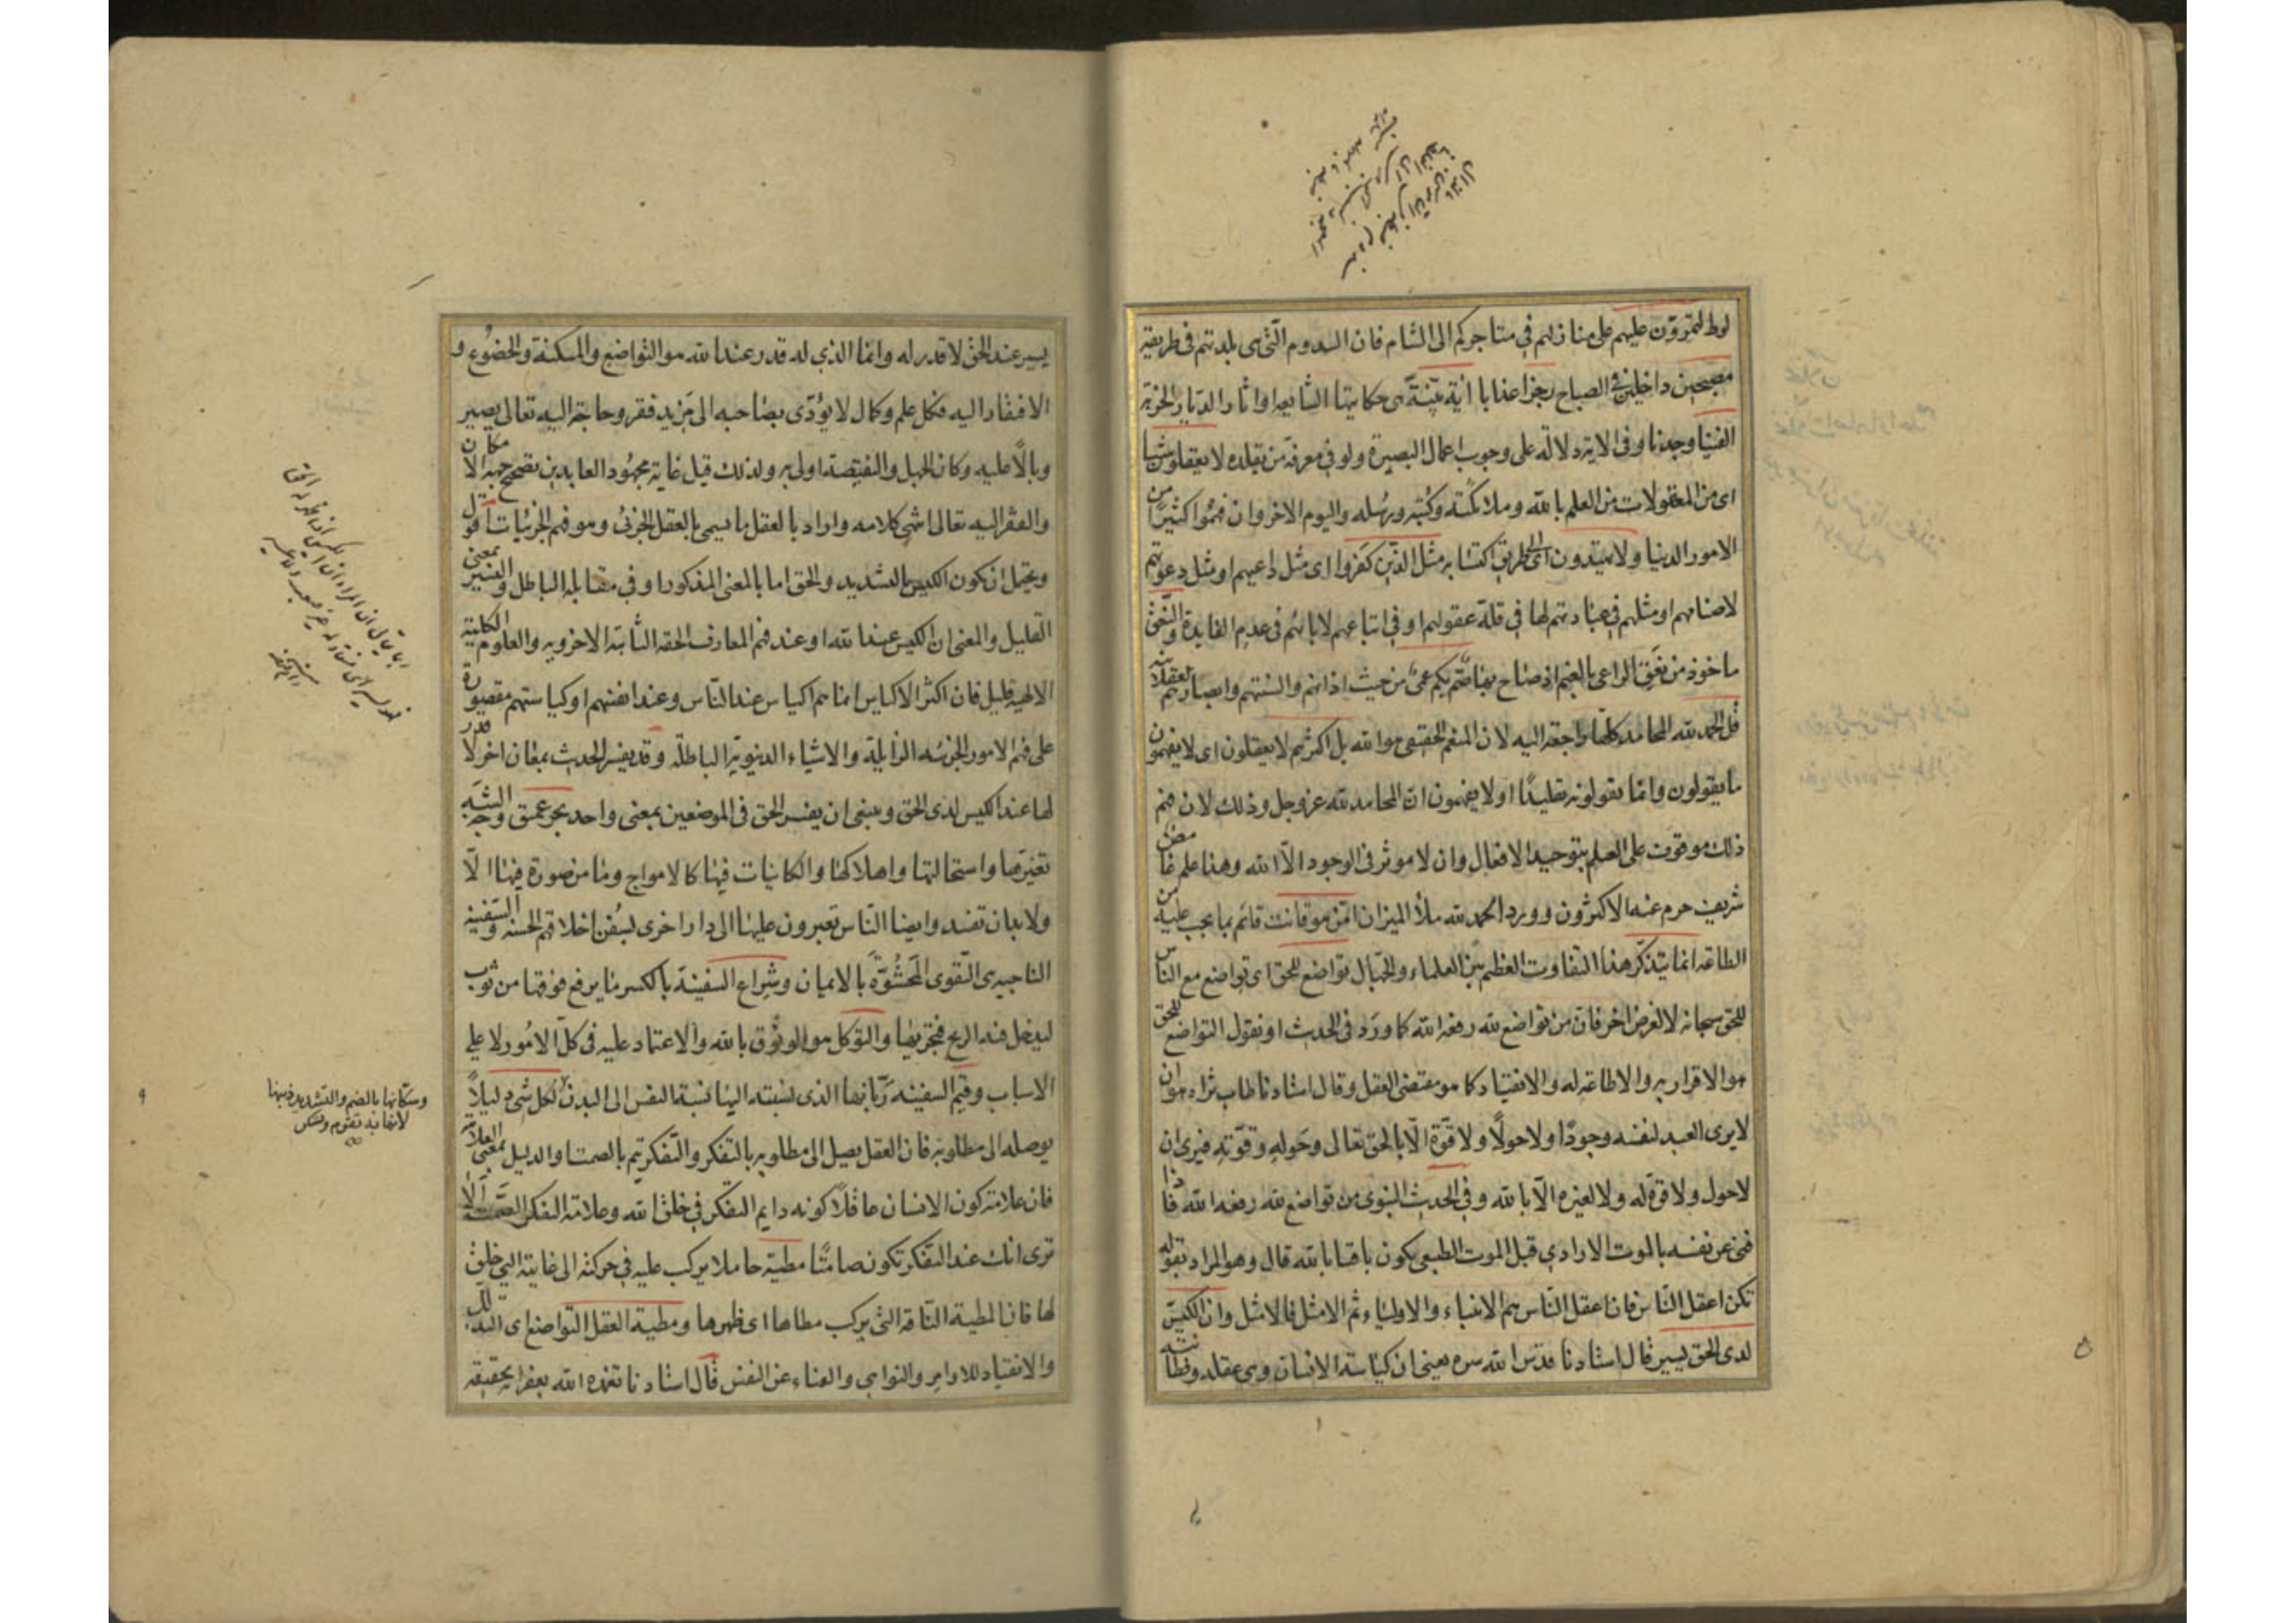 لوط لتمرّون عليهم على منازلهم في متاجركم الى الشام فان السدوم الّتي هي بلدتهم في طريقه
مصبحين داخلين في الصباح رجزا عذابا اية بيّنة هي حكايتها الشايعه او اثار الديار الخربة
الفينا وجدنا وفي الاية دلالة على وجوب اعمال البصيرة ولو في معرفة من يقلده لا يعقلون شيئا
اى من المعقولات من العلم بالله وملائكته وكتبه ورسله واليوم الاخر وان فهموا كثيرًا من
الامور الدنيا ولا يهتدون الى طريق اكتسابه مثل الذين كفروا اى مثل داعيهم او مثل دعوتهم
لاصنامهم او مثلهم في عبادتهم لها في قلة عقولهم او في اتباعهم لابائهم في عدم الفايدة والنعق
ماخوذ من نعق الراعى بالغنم اذ صاح بها صمّ بكم عمى من حيث اذانهم والسنتهم وابصارهم العقلانيه
قل الحمد لله المحامد كلّها راجعة اليه لان المنعم الحقيقى هو الله بل اكثرهم لا يعقلون اى لا يفهمون
ما يقولون وانما يقولونه تقليدًا او لا يفهمون ان المحامد لله عز وجل وذلك لان فهم
ذلك موقوف على العلم بتوحيد الافعال وان لا موثر في الوجود الّا الله وهذا علم غامض
شريف حرم عنه الاكثرون وورد الحمد لله ملأ الميزان امّن هو قانت قائم بما يجب عليه من
الطاعة انما يتذكر هذا التفاوت العظيم بين العلماء والجهال تواضع للحق اى تواضع مع الناس
للحق سبحانه لا لغرض اخر فان من تواضع لله رفعه الله كما ورد في الحديث او نقول التواضع للحق
هو الاقرار به والاطاعة له والانقياد كما هو مقتضى العقل وقال استادنا طاب ثراه هو ان
لا يرى العبد لنفسه وجودًا ولا حولًا ولا قوّة الّا بالحق تعالى وحوله وقوّته فيرى ان
لا حول ولا قوة له ولا لغيره الّا بالله وفي الحديث النبوى من تواضع لله رفعه الله فاذا
فنى عن نفسه بالموت الارادي قبل الموت الطبيعى يكون باقيا بالله قال وهو المراد بقوله
تكن اعقل النّاس فان اعقل النّاس هم الانبياء والاولياء ثم الامثل فالامثل وان الكيّس
لدى الحق يسير قال استادنا قدس الله سره يعنى ان كياسة الانسان وهى عقله وفطانته
يسير عند الحق لا قدر له وانما الذي له قدر عند الله هو التواضع والمسكنة والخضوع و
الافتقار اليه فكل علم وكمال لا يؤدّى بصاحبه الى مزيد فقر وحاجة اليه تعالى يصير
وبالًا عليه وكان الجهل والنقيصة اولى به ولذلك قيل غاية مجهود العابدين تصحيح جهة الامكان
والفقر اليه تعالى انتهى كلامه واراد بالعقل ما يسمى بالعقل الجزئى وهو فهم الجزئيات اقول
ويحتمل ان يكون الكيس بالتشديد والحق اما بالمعنى المذكور او في مقابلة الباطل واليسير بمعنى
القليل والمعنى ان الكيس عند الله او عند فهم المعارف الحقه الثابتة الاخروية والعلوم الكلية
الالهيه قليل فان اكثر الاكياس انما هم اكياس عند النّاس وعند انفسهم او كياستهم مقصورة
على فهم الامور الجزئيه الزايلة والاشياء الدنيوية الباطلة وقد يفسر الحديث بمعان اخر لا قدر
لها عند الكيس لدى الحق وينبغى ان يفسر الحق في الموضعين بمعنى واحد بحر عميق وجه الشبه
تغيّرها واستحالتها واهلاكها والكائنات فيها كالامواج وما من صورة فيها الّا
ولا بد ان تفسد وايضا النّاس تعبرون عليها الى دار اخرى بسفن اخلاقهم الحسنه والسفينة
الناجية هى التّقوى المحشوّة بالايمان وشراع السفينة بالكسر ما يرفع فوقها من ثوب
ليدخل فيه الريح فتجريها والتوكل هو الوثوق بالله والاعتماد عليه في كلّ الامور لا على
الاسباب وقيّم السفينه ربّانها الذى نسبته اليها نسبة النفس الى البدن لكل شى دليلًا
يوصله الى مطلوبه فان العقل يصل الى مطلوبه بالتفكر والتّفكر يتم بالصمت او الدليل بمعنى العلامة
فان علامة كون الانسان عاقلًا كونه دايم التفكر في خلق الله وعلامة التفكر الصمت الا
ترى انك عند التفكر تكون صامتًا مطية حاملا يركب عليه في حركته الى غايته التي خلق
لها فان المطية النّاقة الّتى يركب مطاها اى ظهرها ومطية العقل التّواضع اى التذلل
والانقياد للاوامر والنواهى والفناء عن النفس قال استادنا تغمده الله بغفرانه حقيقة
وسكّانها بالضم والتشديد ذنبها
لانها به تقوم وتسكن